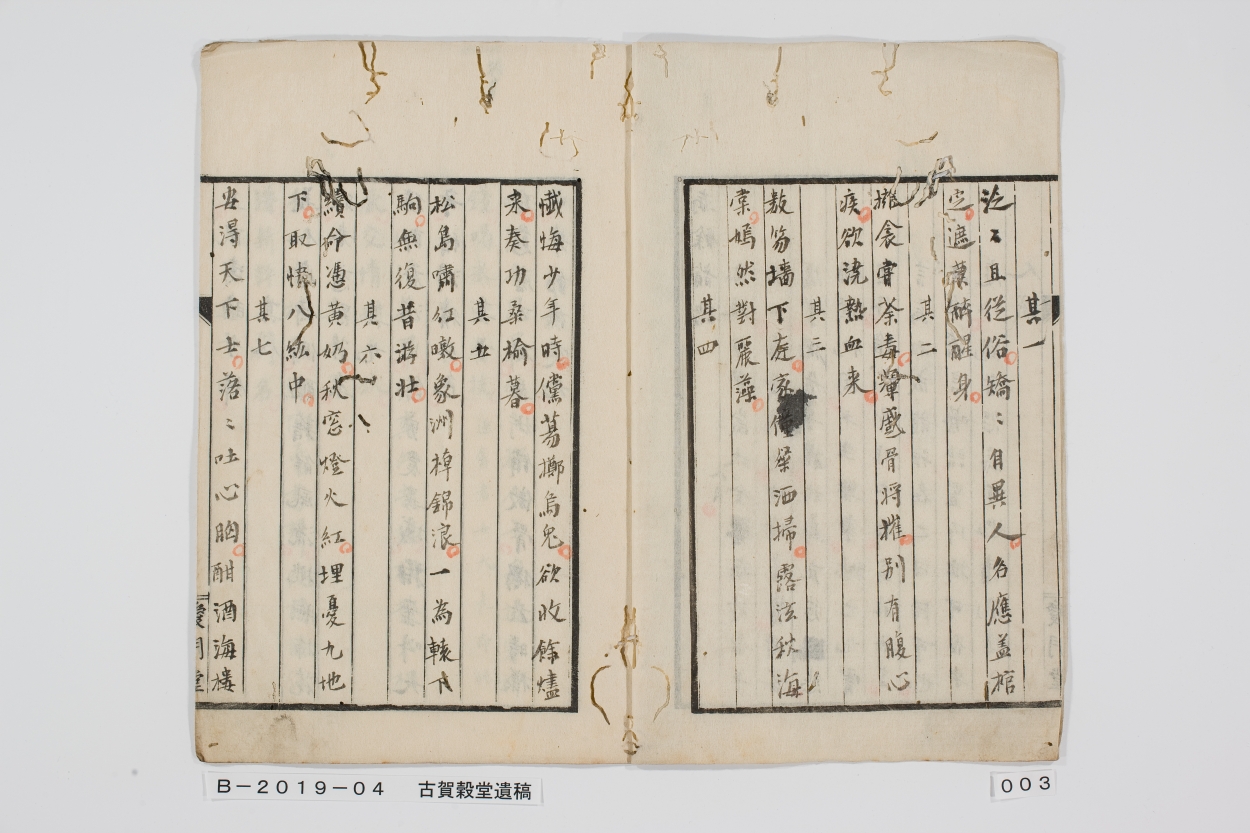 其一
泛〻且從俗矯〻自異人名應蓋棺
定遮醉醒身
其二
擁衾嘗荼毒骨將摧別有腹心
疾欲澆熱血来
其三
数笏墻下庭家僮洒掃露泫秋海
棠嫣然對麗藻
其四
懺悔少年時儻蕩擲烏兔欲收餘燼
来奏功桑榆暮
其五
松島嘯紅暾象洲棹錦浪一為轅下
駒無復昔游壮
其六
續命憑黄奶秋窓燈火紅埋憂九地
下取憤八紘中
其七
安得天下士落〻吐心胸酣酒海樓
B－2019－04　古賀穀堂遺稿
003